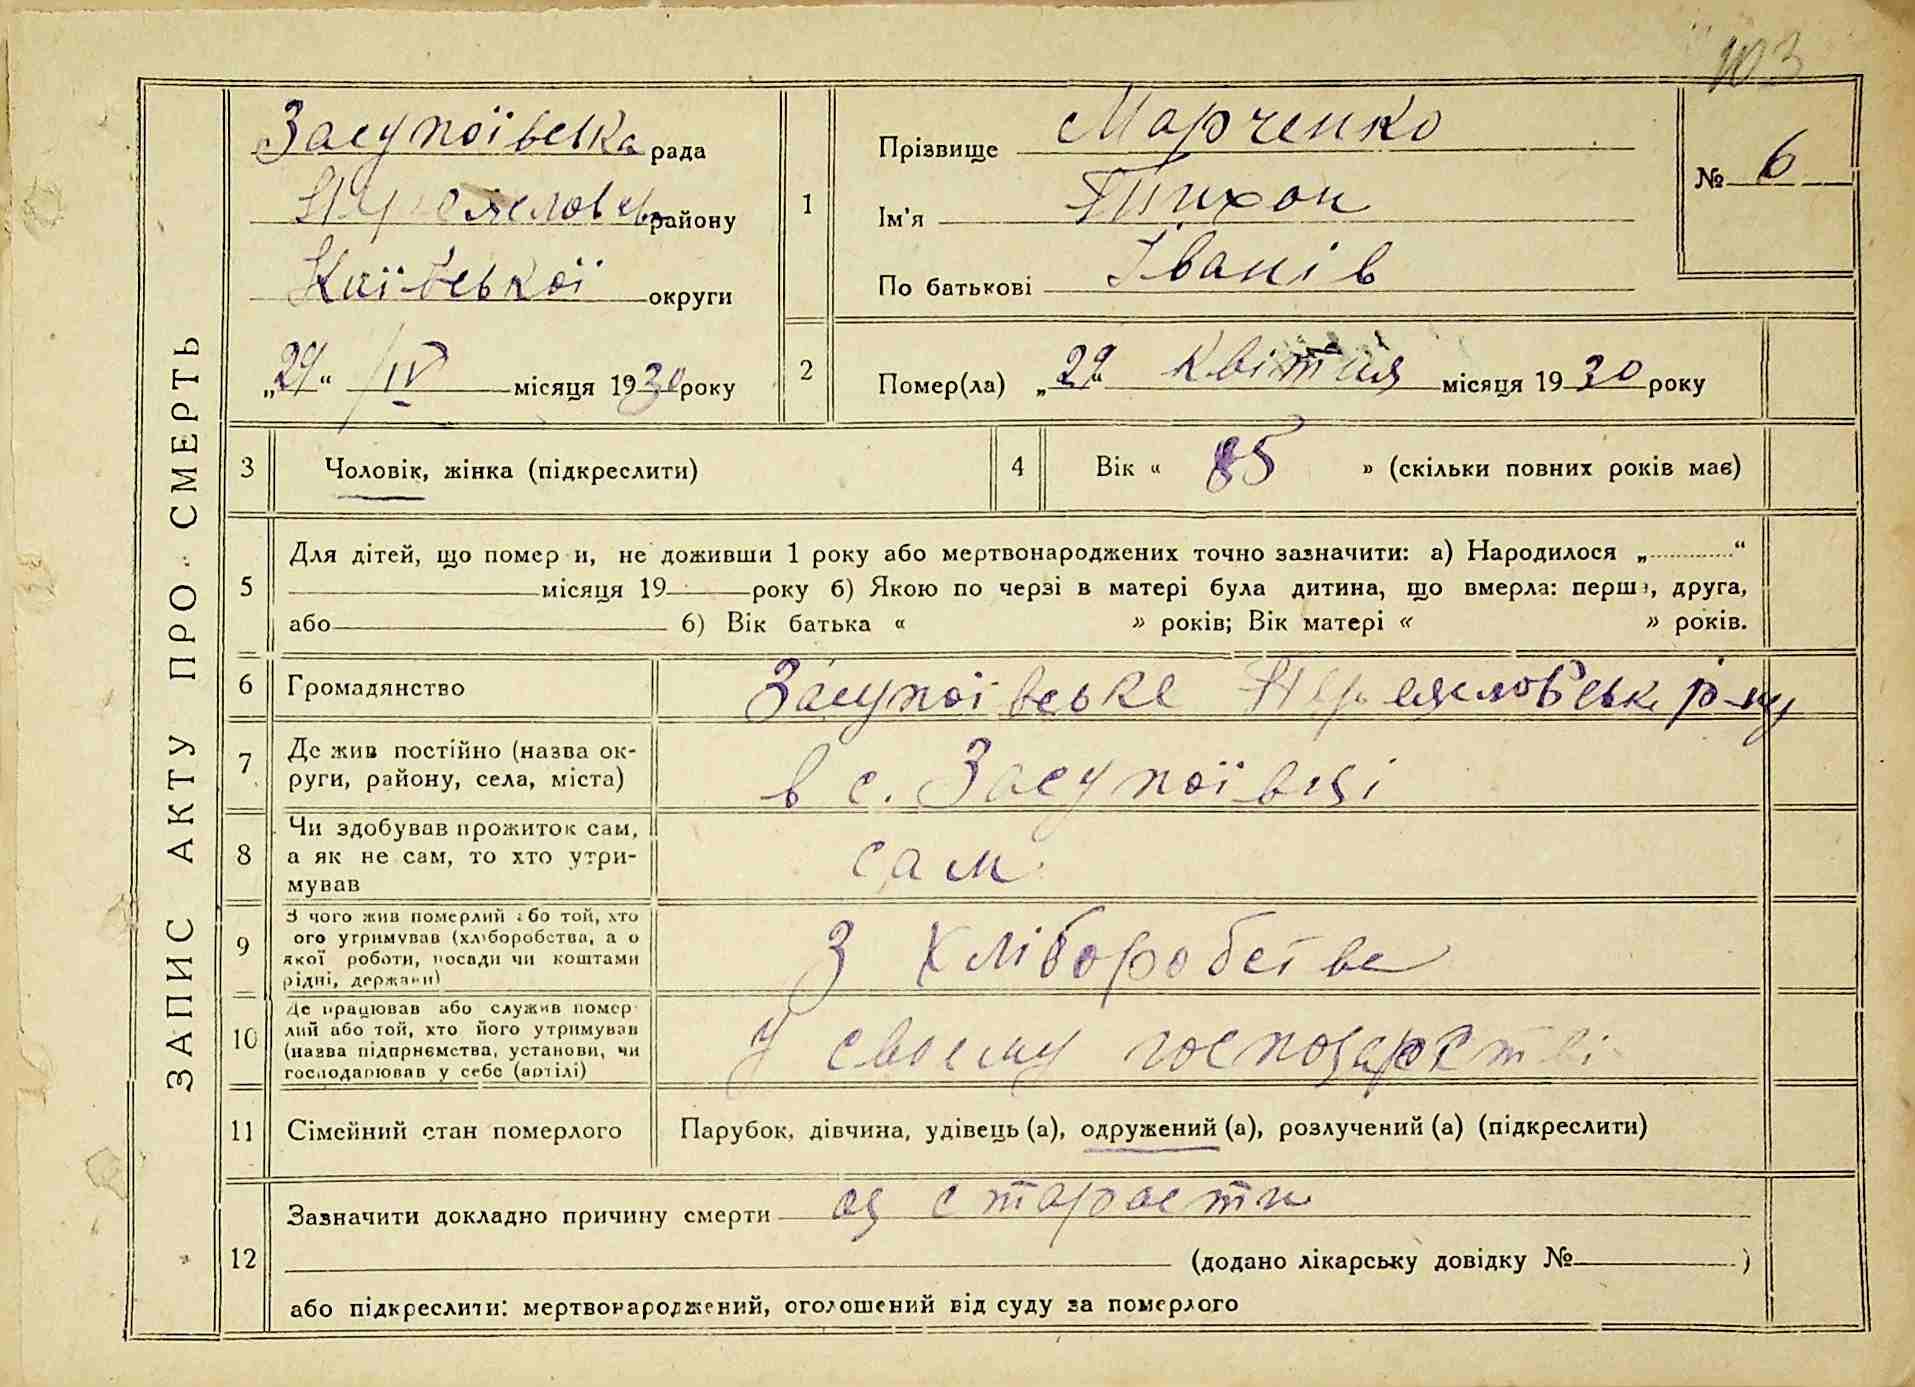 103
ЗАПИС АКТУ ПРО СМЕРТЬ
Засупоївська рада
району
Київської округи
„29“ IV місяця 1930 року
1
Прізвище Марченко
Ім'я Тихон
По батькові Іванів
№ 6
2
Помер(ла) „29“ квітня місяця 1930 року
3 Чоловік, жінка (підкреслити)
4 Вік « 85 » (скільки повних років має)
5
Для дітей, що помер и, не доживши 1 року або мертвонароджених точно зазначити: а) Народилося „ “
місяця 19 року б) Якою по черзі в матері була дитина, що вмерла: перша, друга,
або 6) Вік батька « » років; Вік матері « » років.
6 Громадянство Засупоївське р-ну
7 Де жив постійно (назва ок-
руги, району, села, міста)
в с. Засупоївці
8 Чи здобував прожиток сам,
а як не сам, то хто утри-
мував
сам
9 З чого жив померлий або той, хто
ого утримував (хліборобства, а о
якої роботи, посади чи коштами
рідні, держави)
З хліборобства
10 Де працював або служив помер
лий або той, хто його утримував
(назва підприємства, установи, чи
господарював у себе (артілі)
У своєму господарстві
11 Сімейний стан померлого Парубок, дівчина, удівець (а), одружений (а), розлучений (а) (підкреслити)
12
Зазначити докладно причину смерти од старости
(додано лікарську довідку № )
або підкреслити: мертвонароджений, оголошений від суду за померлого